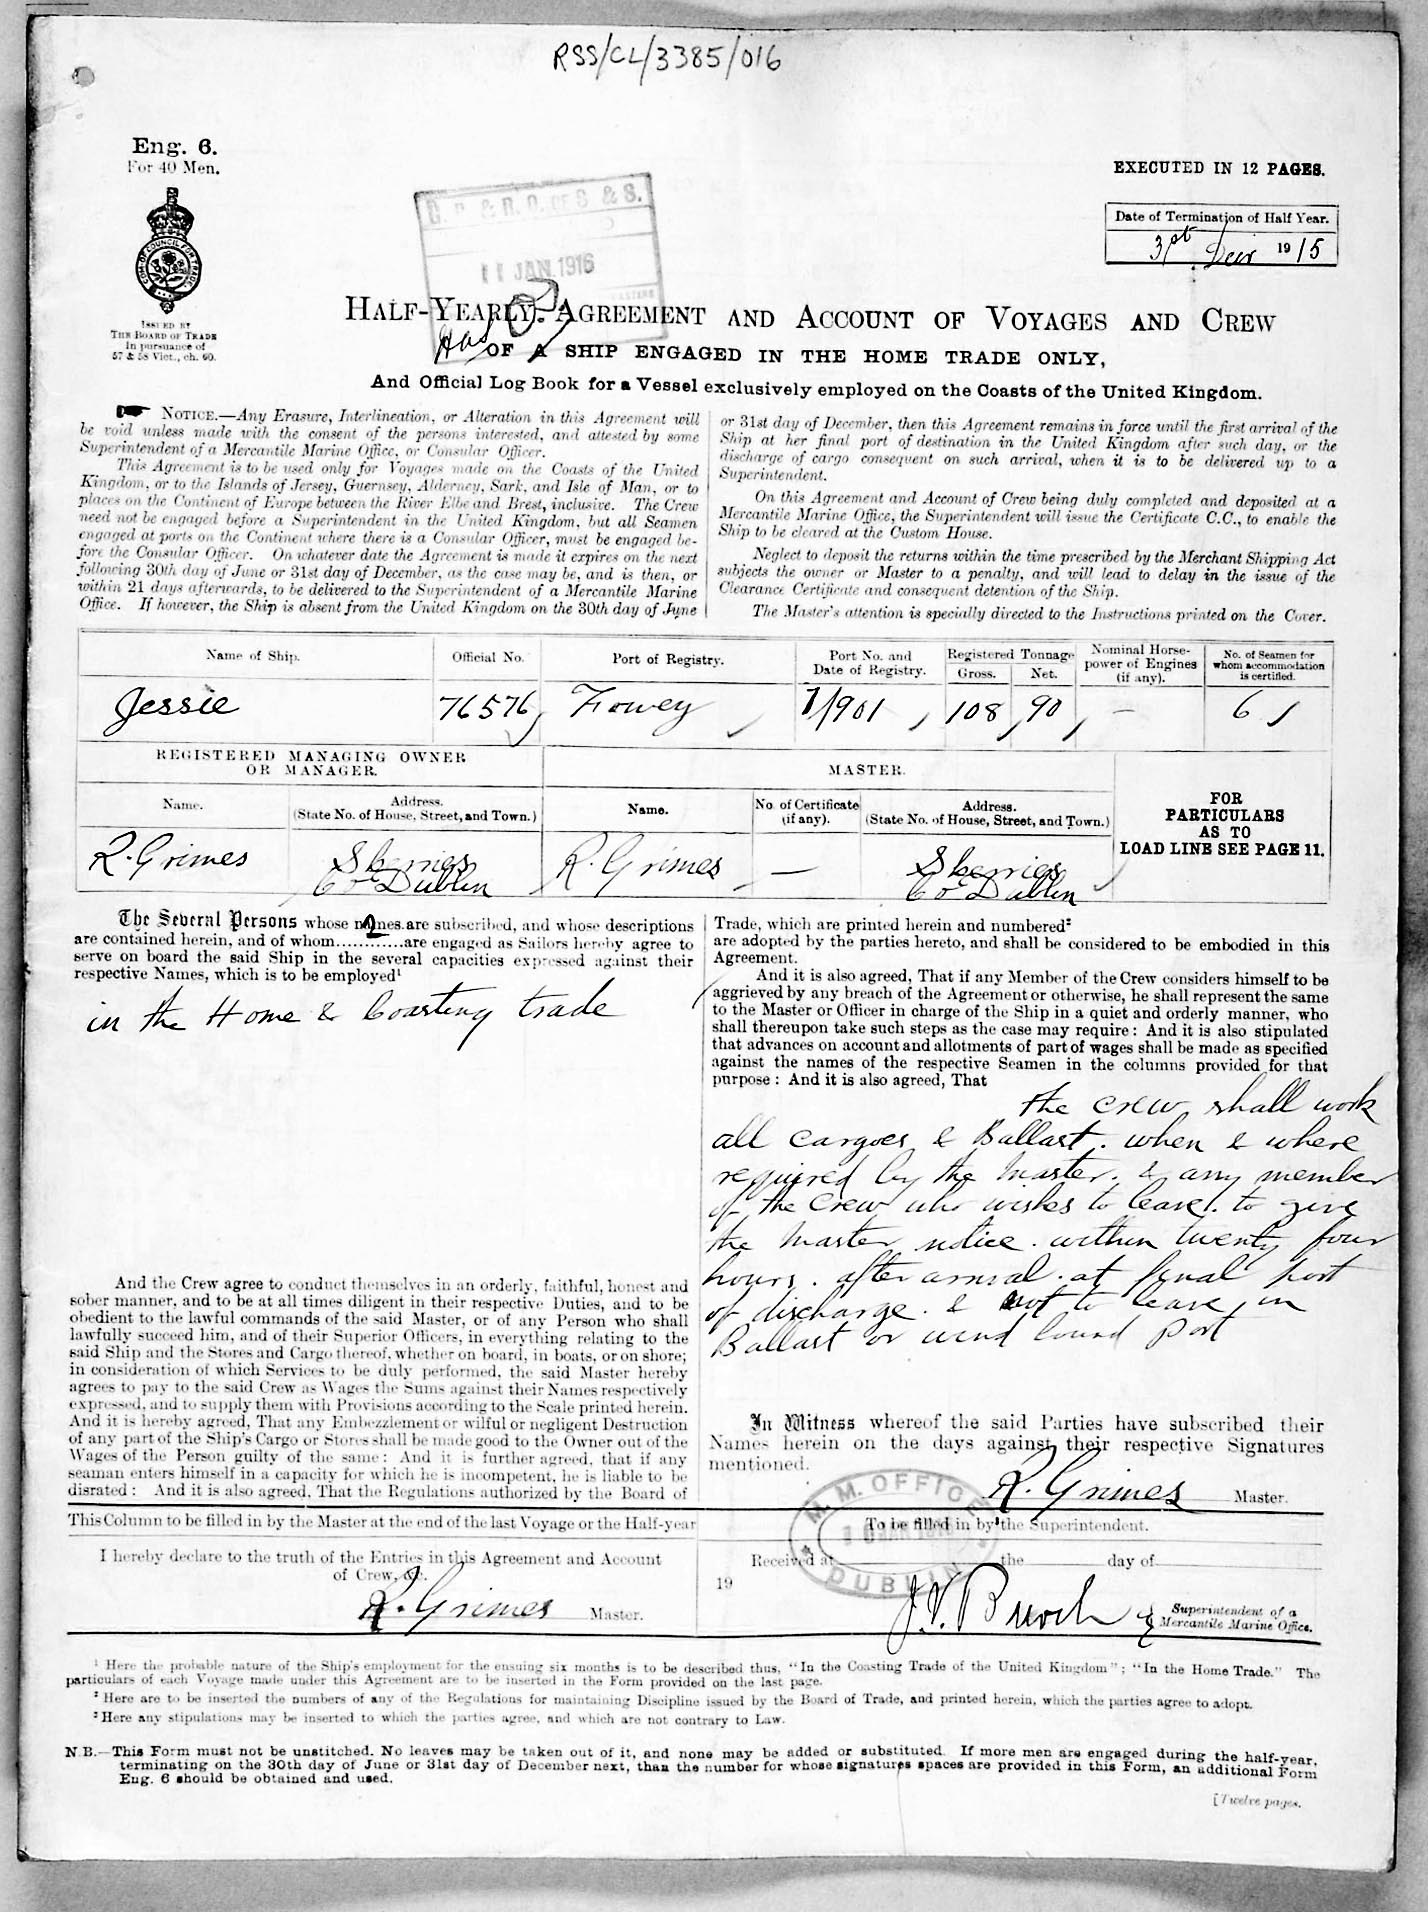 RSS/CL/3385/016
Eng. 6.
For 40 Men.
EXECUTED IN 12 PAGES.
Date of Termination of Half Year.
31st Decr 1915
COM. OF COUNCIL FOR TRADE
ISSUED BY
THE BOARD OF TRADE
In pursuance of
57 & 58 Vict., ch. 60.
G. R. & R. O. OF S & S.
11 JAN. 1916
HALF-YEARLY AGREEMENT AND ACCOUNT OF VOYAGES AND CREW
OF A SHIP ENGAGED IN THE HOME TRADE ONLY,
And Official Log Book for a Vessel exclusively employed on the Coasts of the United Kingdom.
NOTICE.—Any Erasure, Interlineation, or Alteration in this Agreement will
be void unless made with the consent of the persons interested, and attested by some
Superintendent of a Mercantile Marine Office, or Consular Officer.
This Agreement is to be used only for Voyages made on the Coasts of the United
Kingdom, or to the Islands of Jersey, Guernsey, Alderney, Sark, and Isle of Man, or to
places on the Continent of Europe between the River Elbe and Brest, inclusive. The Crew
need not be engaged before a Superintendent in the United Kingdom, but all Seamen
engaged at ports on the Continent where there is a Consular Officer, must be engaged be-
fore the Consular Officer. On whatever date the Agreement is made it expires on the next
following 30th day of June or 31st day of December, as the case may be, and is then, or
within 21 days afterwards, to be delivered to the Superintendent of a Mercantile Marine
Office. If however, the Ship is absent from the United Kingdom on the 30th day of June
or 31st day of December, then this Agreement remains in force until the first arrival of the
Ship at her final port of destination in the United Kingdom after such day, or the
discharge of cargo consequent on such arrival, when it is to be delivered up to a
Superintendent.
On this Agreement and Account of Crew being duly completed and deposited at a
Mercantile Marine Office, the Superintendent will issue the Certificate C.C., to enable the
Ship to be cleared at the Custom House.
Neglect to deposit the returns within the time prescribed by the Merchant Shipping Act
subjects the owner or Master to a penalty, and will lead to delay in the issue of the
Clearance Certificate and consequent detention of the Ship.
The Master's attention is specially directed to the Instructions printed on the Cover.
Name of Ship. Official No. Port of Registry. Port No. and Date of Registry. Registered Tonnage Gross. Net. Nominal Horse-power of Engines (if any). No. of Seamen for whom accommodation is certified.
Jessie 76576 Fowey 1/901 108 90 — 6
REGISTERED MANAGING OWNER
OR MANAGER.
MASTER.
Name. Address. (State No. of House, Street, and Town.) Name. No. of Certificate (if any). Address. (State No. of House, Street, and Town.)
FOR
PARTICULARS
AS TO
LOAD LINE SEE PAGE 11.
R. Grimes Skerries Co Dublin R. Grimes — Skerries Co Dublin
The Several Persons whose names are subscribed, and whose descriptions
are contained herein, and of whom 2 are engaged as Sailors hereby agree to
serve on board the said Ship in the several capacities expressed against their
respective Names, which is to be employed¹
in the Home & Coasting trade
And the Crew agree to conduct themselves in an orderly, faithful, honest and
sober manner, and to be at all times diligent in their respective Duties, and to be
obedient to the lawful commands of the said Master, or of any Person who shall
lawfully succeed him, and of their Superior Officers, in everything relating to the
said Ship and the Stores and Cargo thereof, whether on board, in boats, or on shore;
in consideration of which Services to be duly performed, the said Master hereby
agrees to pay to the said Crew as Wages the Sums against their Names respectively
expressed, and to supply them with Provisions according to the Scale printed herein.
And it is hereby agreed, That any Embezzlement or wilful or negligent Destruction
of any part of the Ship's Cargo or Stores shall be made good to the Owner out of the
Wages of the Person guilty of the same: And it is further agreed, that if any
seaman enters himself in a capacity for which he is incompetent, he is liable to be
disrated: And it is also agreed, That the Regulations authorized by the Board of
Trade, which are printed herein and numbered²
are adopted by the parties hereto, and shall be considered to be embodied in this
Agreement.
And it is also agreed, That if any Member of the Crew considers himself to be
aggrieved by any breach of the Agreement or otherwise, he shall represent the same
to the Master or Officer in charge of the Ship in a quiet and orderly manner, who
shall thereupon take such steps as the case may require: And it is also stipulated
that advances on account and allotments of part of wages shall be made as specified
against the names of the respective Seamen in the columns provided for that
purpose: And it is also agreed, That
the crew shall work
all cargoes & Ballast. when & where
required by the Master. & any member
of the Crew who wishes to leave. to give
the Master notice. within twenty four
hours. after arrival. at final port
of discharge. & not to leave in
Ballast or wind bound port
In Witness whereof the said Parties have subscribed their
Names herein on the days against their respective Signatures
mentioned.
R. Grimes Master.
This Column to be filled in by the Master at the end of the last Voyage or the Half-year
I hereby declare to the truth of the Entries in this Agreement and Account
of Crew, &c.
R. Grimes Master.
To be filled in by the Superintendent.
Received at the day of
19
M. M. OFFICE
DUBLIN
Superintendent of a
Mercantile Marine Office.
¹ Here the probable nature of the Ship's employment for the ensuing six months is to be described thus, "In the Coasting Trade of the United Kingdom"; "In the Home Trade." The
particulars of each Voyage made under this Agreement are to be inserted in the Form provided on the last page.
² Here are to be inserted the numbers of any of the Regulations for maintaining Discipline issued by the Board of Trade, and printed herein, which the parties agree to adopt.
³ Here any stipulations may be inserted to which the parties agree, and which are not contrary to Law.
N.B.—This Form must not be unstitched. No leaves may be taken out of it, and none may be added or substituted. If more men are engaged during the half-year,
terminating on the 30th day of June or 31st day of December next, than the number for whose signatures spaces are provided in this Form, an additional Form
Eng. 6 should be obtained and used.
[Twelve pages.